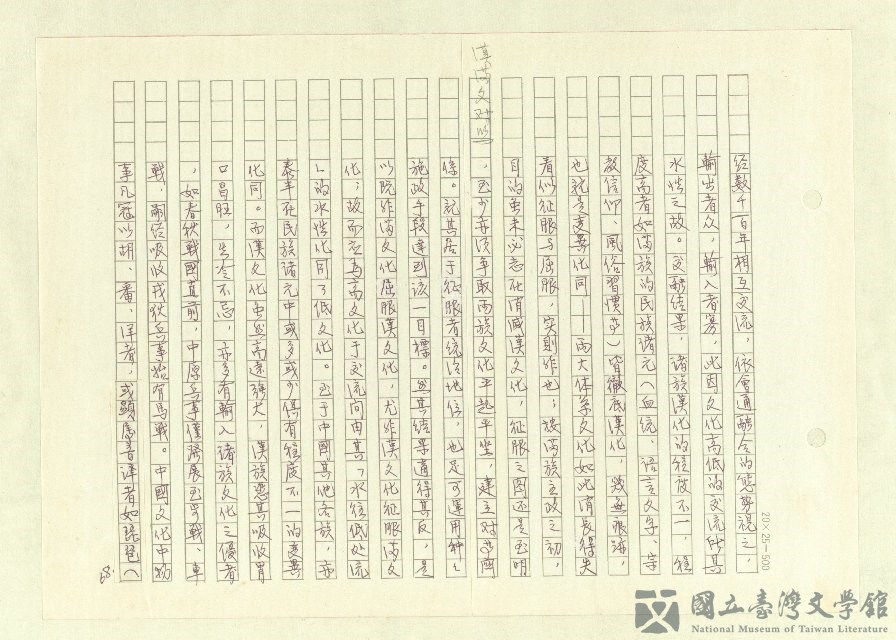 經數千百年相互交流，依會通融合的態勢視之，
輸出者众，輸入者寡，此因文化高低的交流所具
水性之故。交融結果，諸族漢化的程度不一，程
度高者如滿族的民族諸元（血統、語言文字、宗
教信仰、風俗習慣等）皆徹底漢化，幾無痕跡，
也就是变異化同——兩大体系文化如此消長得失
看似征服与屈服，实則非也；按滿族主政之初，
目的虽未必志在消滅漢文化，征服之图还是至明
，至少亦須爭取兩族文化平起平坐，建立对等関
漢滿文对等
係。就其居于征服者統治地位，也足可運用种々
施政手段達到该一目標。然其結果適得其反，是
以既非滿文化屈服漢文化，尤非漢文化征服滿文
化；故而应為高文化于交流间由其「水往低处流
」的水性化同了低文化。至于中國其他各族，亦
泰半在民族諸元中或多或少俱有程度不一的变異
化同。而漢文化虽然高遠強大，漢族憑其吸收胃
口昌旺，生冷不忌，亦多有輸入諸族文化之優者
，如春秋戰國直前，中原兵事僅發展至步戰、車
戰，嗣后吸收戎狄兵事始有馬戰。中國文化中物
事凡冠以胡、番、洋者，或顯屬音譯者如琵琶（
68.
20×25=500
國立臺灣文學館
National Museum of Taiwan Literature